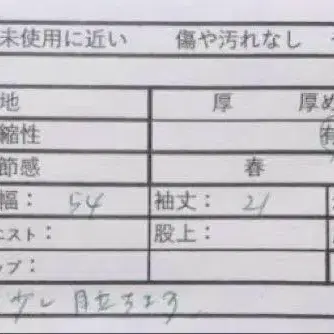 未使用に近い 傷や汚れなし
地 厚 厚め
縮性
節感 春
幅: 54 袖丈: 21
エスト: 股上:
ップ:
少し目立ちます